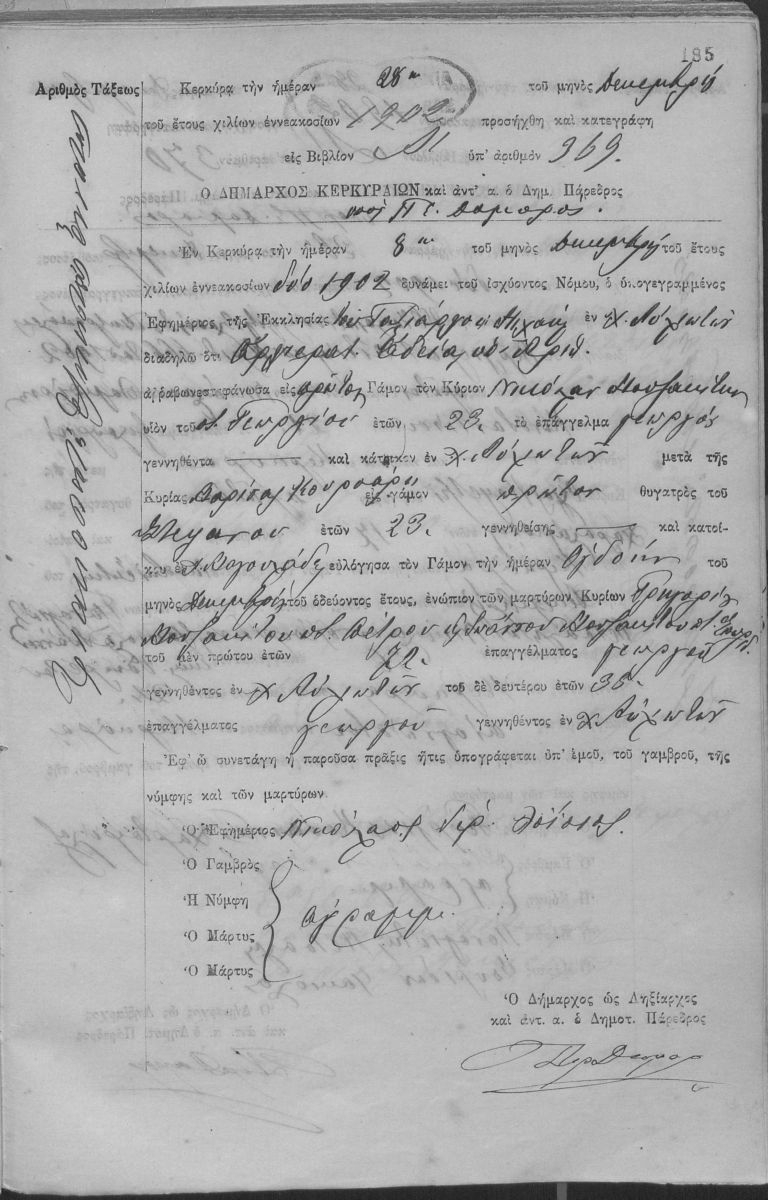 185
Ἀριθμὸς Τάξεως
Τριακόσια ἑξήκοντα ἐννέα
Κερκύρα τὴν ἡμέραν 28ην τοῦ μηνὸς Δεκεμβρίου
τοῦ ἔτους χιλίων ἐννεακοσίων 1902 προσήχθη καὶ κατεγράφη
εἰς Βιβλίον ὑπ' ἀριθμὸν 369.
Ὁ ΔΗΜΑΡΧΟΣ ΚΕΡΚΥΡΑΙΩΝ καὶ ἀντ' α. ὁ Δημ. Πάρεδρος
Ἐν Κερκύρα τὴν ἡμέραν 8ην τοῦ μηνὸς Δεκεμβρίου τοῦ ἔτους
χιλίων ἐννεακοσίων δύο 1902 δυνάμει τοῦ ἰσχύοντος Νόμου, ὁ ὑπογεγραμμένος
Ἐφημέριος τῆς Ἐκκλησίας τοῦ Ταξιάρχου Μιχαὴλ ἐν χ. Αὐλιωτῶν
διαδηλῶ ὅτι Ἀρχιερατ. Ἀδείᾳ
ἀρραβωνεστεφάνωσα εἰς πρῶτον Γάμον τὸν Κύριον Νικόλαον Μουζακίτην
υἱὸν τοῦ Γεωργίου ἐτῶν 23. τὸ ἐπάγγελμα γεωργὸν
γεννηθέντα — καὶ κάτοικον ἐν χ. Αὐλιωτῶν μετὰ τῆς
Κυρίας εἰς γάμον πρῶτον θυγατρὸς τοῦ
Στεφάνου ἐτῶν 23. γεννηθείσης — καὶ κατοί-
κου ἐν χ. εὐλόγησα τὸν Γάμον τὴν ἡμέραν Ὀγδόην τοῦ
μηνὸς Δεκεμβρίου τοῦ ὁδεύοντος ἔτους, ἐνώπιον τῶν μαρτύρων Κυρίων Γρηγορίου
Μουζακίτου Πέτρου Μουζακίτου Γεωργ.
τοῦ μὲν πρώτου ἐτῶν 72. ἐπαγγέλματος γεωργοῦ
γεννηθέντος ἐν χ. Αὐλιωτῶν τοῦ δὲ δευτέρου ἐτῶν 35
ἐπαγγέλματος γεωργοῦ γεννηθέντος ἐν χ. Αὐλιωτῶν
Ἐφ' ᾧ συνετάγη ἡ παροῦσα πρᾶξις ἥτις ὑπογράφεται ὑπ' ἐμοῦ, τοῦ γαμβροῦ, τῆς
νύμφης καὶ τῶν μαρτύρων
Ὁ Ἐφημέριος Νικόλαος Ἱερ.
Ὁ Γαμβρὸς
Ἡ Νύμφη
ἀγράμμ.
Ὁ Μάρτυς
Ὁ Μάρτυς
Ὁ Δήμαρχος ὡς Ληξίαρχος
καὶ ἀντ. α. ὁ Δημοτ. Πάρεδρος